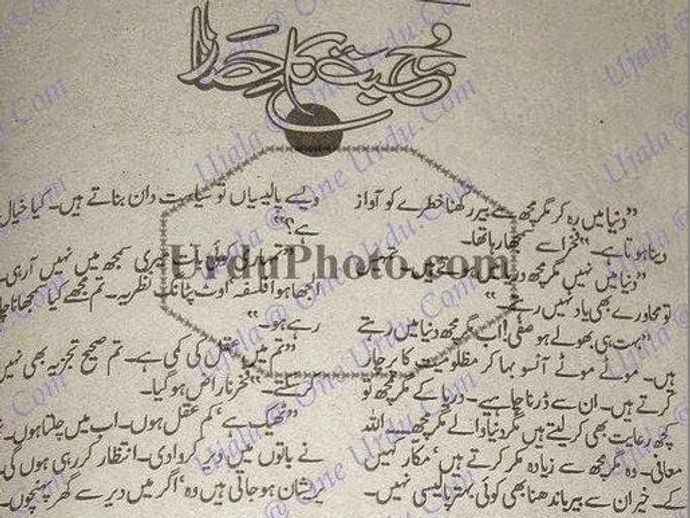 محبت کا حصار
”دنیا میں رہ کر مگرمچھ سے بیر رکھنا خطرے کو آواز
دینا ہوتا ہے۔“ فخر اسے سمجھا رہا تھا۔
”دنیا میں نہیں مگرمچھ دریا میں ہوتے ہیں۔ تمہیں
تو محاورے بھی یاد نہیں رہتے۔“
”بہت ہی بھولے ہو صفی! اب مگرمچھ دنیا میں رہتے
ہیں۔ موٹے موٹے آنسو بہا کر مظلومیت کا پرچار
کرتے ہیں۔ ان سے ڈرنا چاہیے۔ دریا کے مگرمچھ تو
کچھ رعایت بھی کر لیتے ہیں مگر دنیا والے مگرمچھ۔۔۔ اللہ
معافی۔ وہ مگرمچھ سے زیادہ مکر کرتے ہیں، مکار کہیں
کے۔ خیر ان سے بیر باندھنا بھی کوئی بہتر پالیسی نہیں۔
ویسے پالیسیاں تو سیاست دان بناتے ہیں۔ کیا خیال
ہے؟“
”تمہاری کوئی بات میری سمجھ میں نہیں آ رہی۔
الجھا ہوا فلسفہ، اوٹ پٹانگ نظریہ۔ تم مجھے کیا سمجھانا چاہ
رہے ہو۔“
”تم میں عقل کی کمی ہے۔ تم صحیح تجزیہ بھی نہیں
کر سکتے۔“ فخر ناراض ہو گیا۔
”ٹھیک ہے، کم عقل ہوں۔ اب میں چلتا ہوں۔
نے باتوں میں دیر کروا دی۔ انتظار کر رہی ہوں گی۔
پریشان ہو جاتی ہیں وہ، اگر میں دیر سے گھر پہنچوں۔
UrduPhoto.com
Ujala @ One Urdu.Com